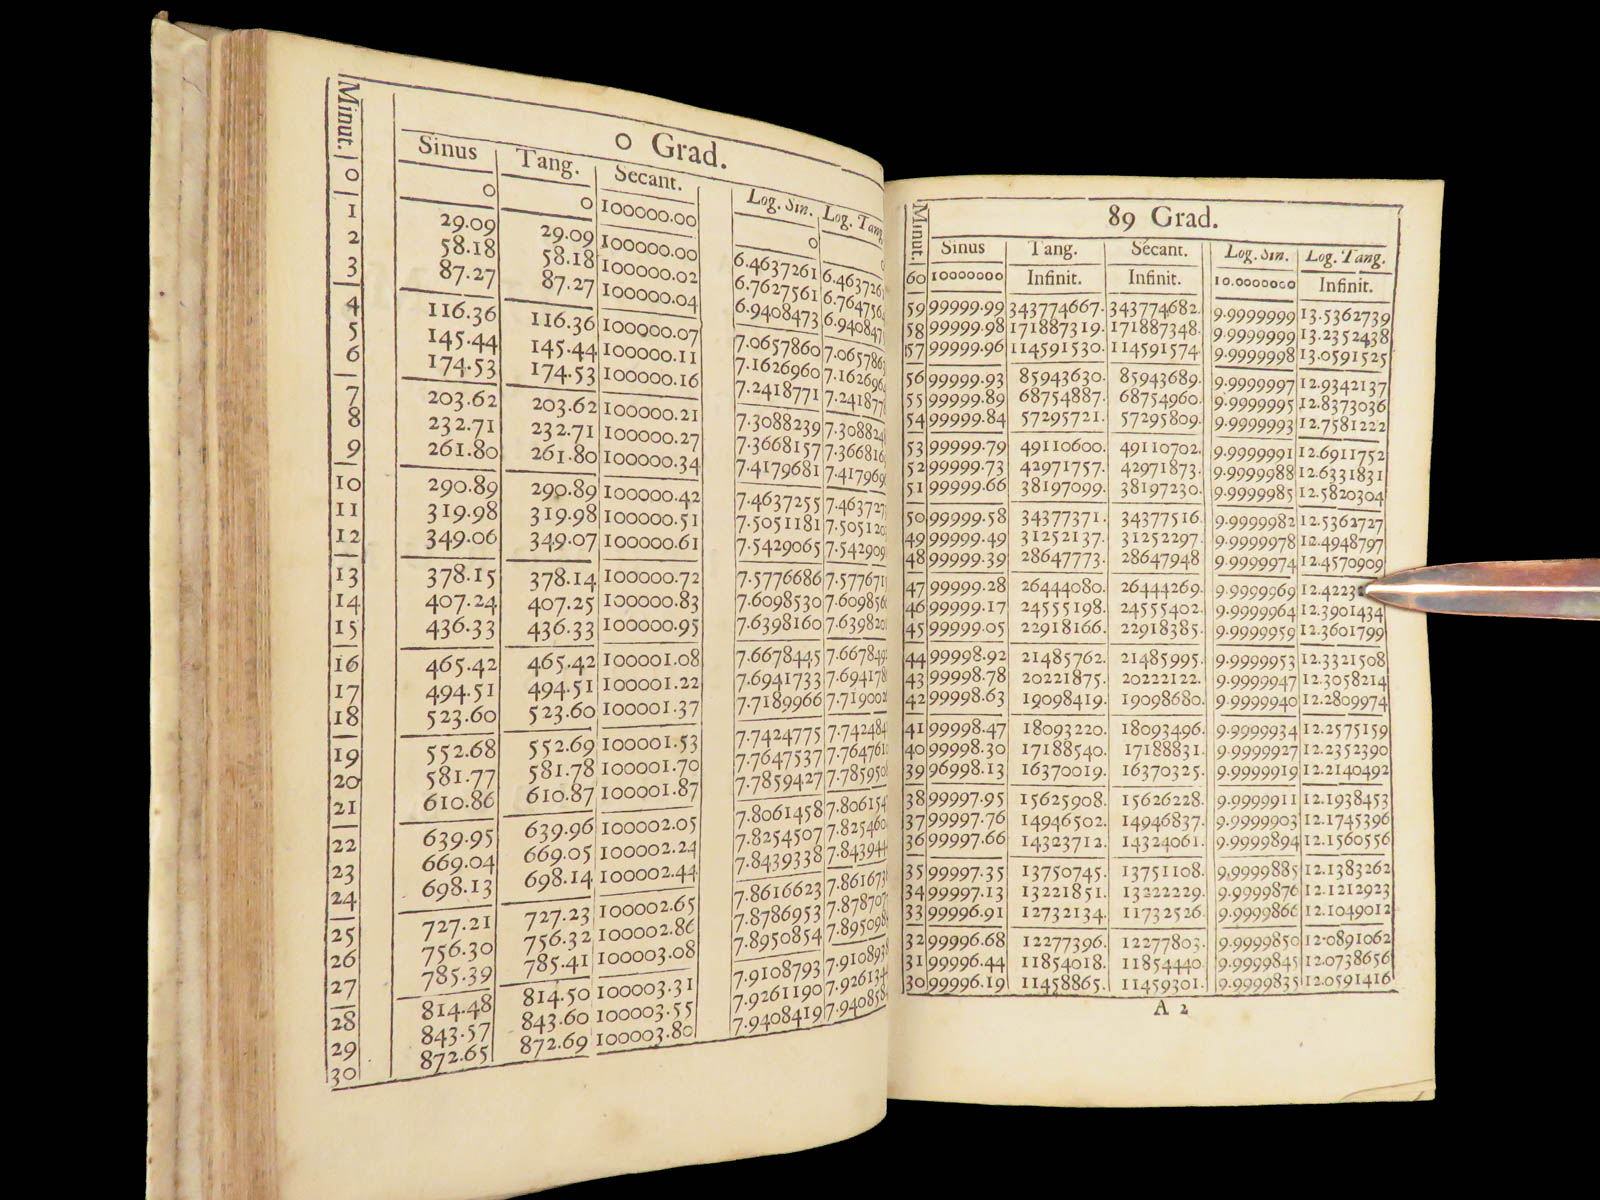 0 Grad.
Minut. Sinus Tang. Secant. Log. Sin. Log. Tang.
0 0 0 100000.00 0
1 29.09 29.09 100000.00 6.4637261 6.463726
2 58.18 58.18 100000.02 6.7627561 6.764756
3 87.27 87.27 100000.04 6.9408473 6.940847
4 116.36 116.36 100000.07 7.0657860 7.065786
5 145.44 145.44 100000.11 7.1626960 7.162696
6 174.53 174.53 100000.16 7.2418771 7.241877
7 203.62 203.62 100000.21 7.3088239 7.30882
8 232.71 232.71 100000.27 7.3668157 7.366816
9 261.80 261.80 100000.34 7.4179681 7.417969
10 290.89 290.89 100000.42 7.4637255 7.463727
11 319.98 319.98 100000.51 7.5051181 7.505120
12 349.06 349.07 100000.61 7.5429065 7.542909
13 378.15 378.14 100000.72 7.5776686 7.577671
14 407.24 407.25 100000.83 7.6098530 7.609856
15 436.33 436.33 100000.95 7.6398160 7.639820
16 465.42 465.42 100001.08 7.6678445 7.667849
17 494.51 494.51 100001.22 7.6941733 7.694178
18 523.60 523.60 100001.37 7.7189966 7.719002
19 552.68 552.69 100001.53 7.7424775 7.742484
20 581.77 581.78 100001.70 7.7647537 7.764761
21 610.86 610.87 100001.87 7.7859427 7.785950
22 639.95 639.96 100002.05 7.8061458 7.806154
23 669.04 669.05 100002.24 7.8254507 7.825460
24 698.13 698.14 100002.44 7.8439338 7.84394
25 727.21 727.23 100002.65 7.8616623 7.861673
26 756.30 756.32 100002.86 7.8786953 7.878707
27 785.39 785.41 100003.08 7.8950854 7.895098
28 814.48 814.50 100003.31 7.9108793 7.910893
29 843.57 843.60 100003.55 7.9261190 7.926134
30 872.65 872.69 100003.80 7.9408419 7.940858
89 Grad.
Minut. Sinus Tang. Sécant. Log. Sin. Log. Tang.
60 10000000 Infinit. Infinit. 10.0000000 Infinit.
59 99999.99 343774667. 343774682. 9.9999999 13.5362739
58 99999.98 171887319. 171887348. 9.9999999 13.2352438
57 99999.96 114591530. 114591574. 9.9999998 13.0591525
56 99999.93 85943630. 85943689. 9.9999997 12.9342137
55 99999.89 68754887. 68754960. 9.9999995 12.8373036
54 99999.84 57295721. 57295809. 9.9999993 12.7581222
53 99999.79 49110600. 49110702. 9.9999991 12.6911752
52 99999.73 42971757. 42971873. 9.9999988 12.6331831
51 99999.66 38197099. 38197230. 9.9999985 12.5820304
50 99999.58 34377371. 34377516. 9.9999982 12.5362727
49 99999.49 31252137. 31252297. 9.9999978 12.4948797
48 99999.39 28647773. 28647948 9.9999974 12.4570909
47 99999.28 26444080. 26444269. 9.9999969 12.4223
46 99999.17 24555198. 24555402. 9.9999964 12.3901434
45 99999.05 22918166. 22918385. 9.9999959 12.3601799
44 99998.92 21485762. 21485995. 9.9999953 12.3321508
43 99998.78 20221875. 20222122. 9.9999947 12.3058214
42 99998.63 19098419. 19098680. 9.9999940 12.2809974
41 99998.47 18093220. 18093496. 9.9999934 12.2575159
40 99998.30 17188540. 17188831. 9.9999927 12.2352390
39 96998.13 16370019. 16370325. 9.9999919 12.2140492
38 99997.95 15625908. 15626228. 9.9999911 12.1938453
37 99997.76 14946502. 14946837. 9.9999903 12.1745396
36 99997.66 14323712. 14324061. 9.9999894 12.1560556
35 99997.35 13750745. 13751108. 9.9999885 12.1383262
34 99997.13 13221851. 13222229. 9.9999876 12.1212923
33 99996.91 12732134. 11732526. 9.9999866 12.1049012
32 99996.68 12277396. 12277803. 9.9999850 12.0891062
31 99996.44 11854018. 11854440. 9.9999845 12.0738656
30 99996.19 11458865. 11459301. 9.9999835 12.0591416
A 2